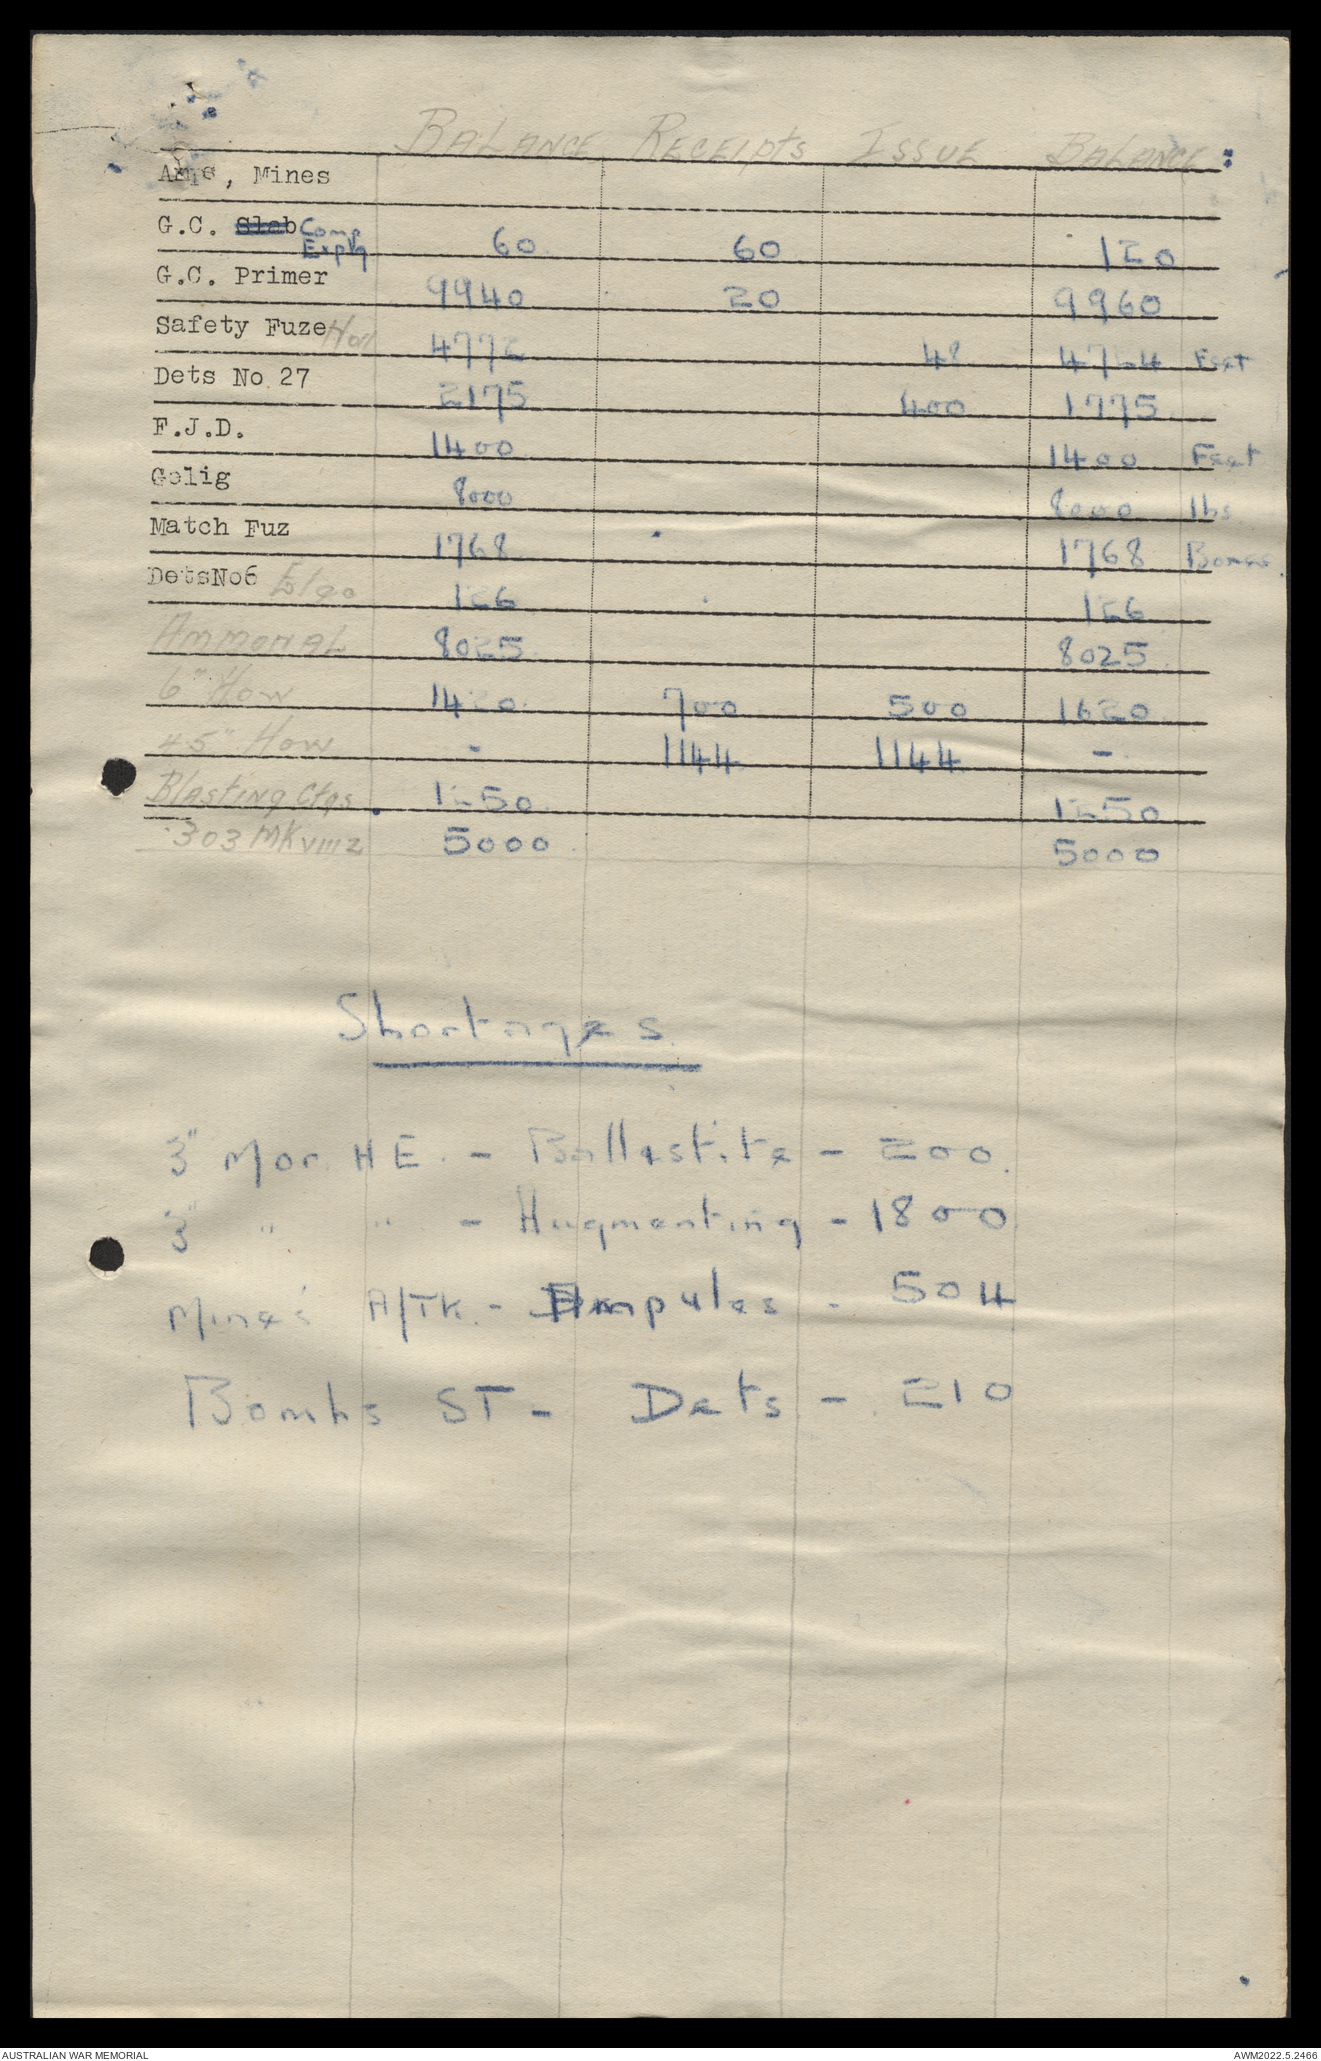 BALANCE RECEIPTS ISSUE BALANCE
, Mines
G.C. Slab Comp Explg 60 60 120
G.C. Primer 9940 20 9960
Safety Fuze 4772 48 4724 Feet
Dets No 27 2175 400 1775
F.J.D. 1400 1400 Feet
Gelig 8000 8000 lbs
Match Fuz 1768 1768 Boxes
DetsNo6 Elec 126 126
AMMONAL 8025 8025
6" How 1420 700 500 1620
45" How - 1144 1144 -
Blasting Ctgs. 1250 1250
.303 MKVIIIZ 5000 5000
Shortages
3" Mor. HE. - Ballestite - 200.
3" " " - Augmenting - 1800
Mines A/TK. - Ampules - 504
Bombs ST - Dets - 210
AUSTRALIAN WAR MEMORIAL AWM2022.5.2466